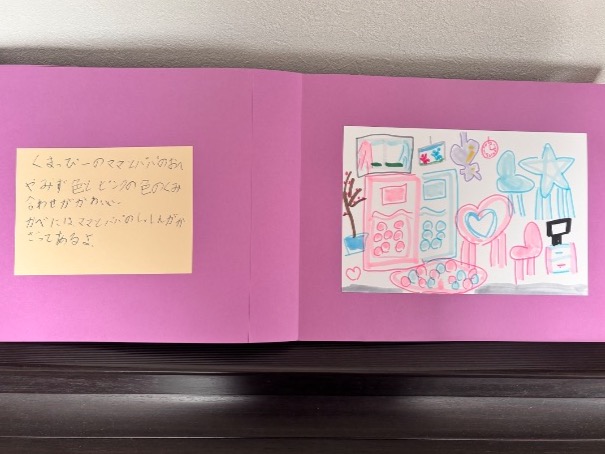 くまっぴーのママとパパのおへ
やみず色とピンクの色のくみ
合わせがかわいい。
かべにはママとパパのしゃしんがか
ざってあるよ。